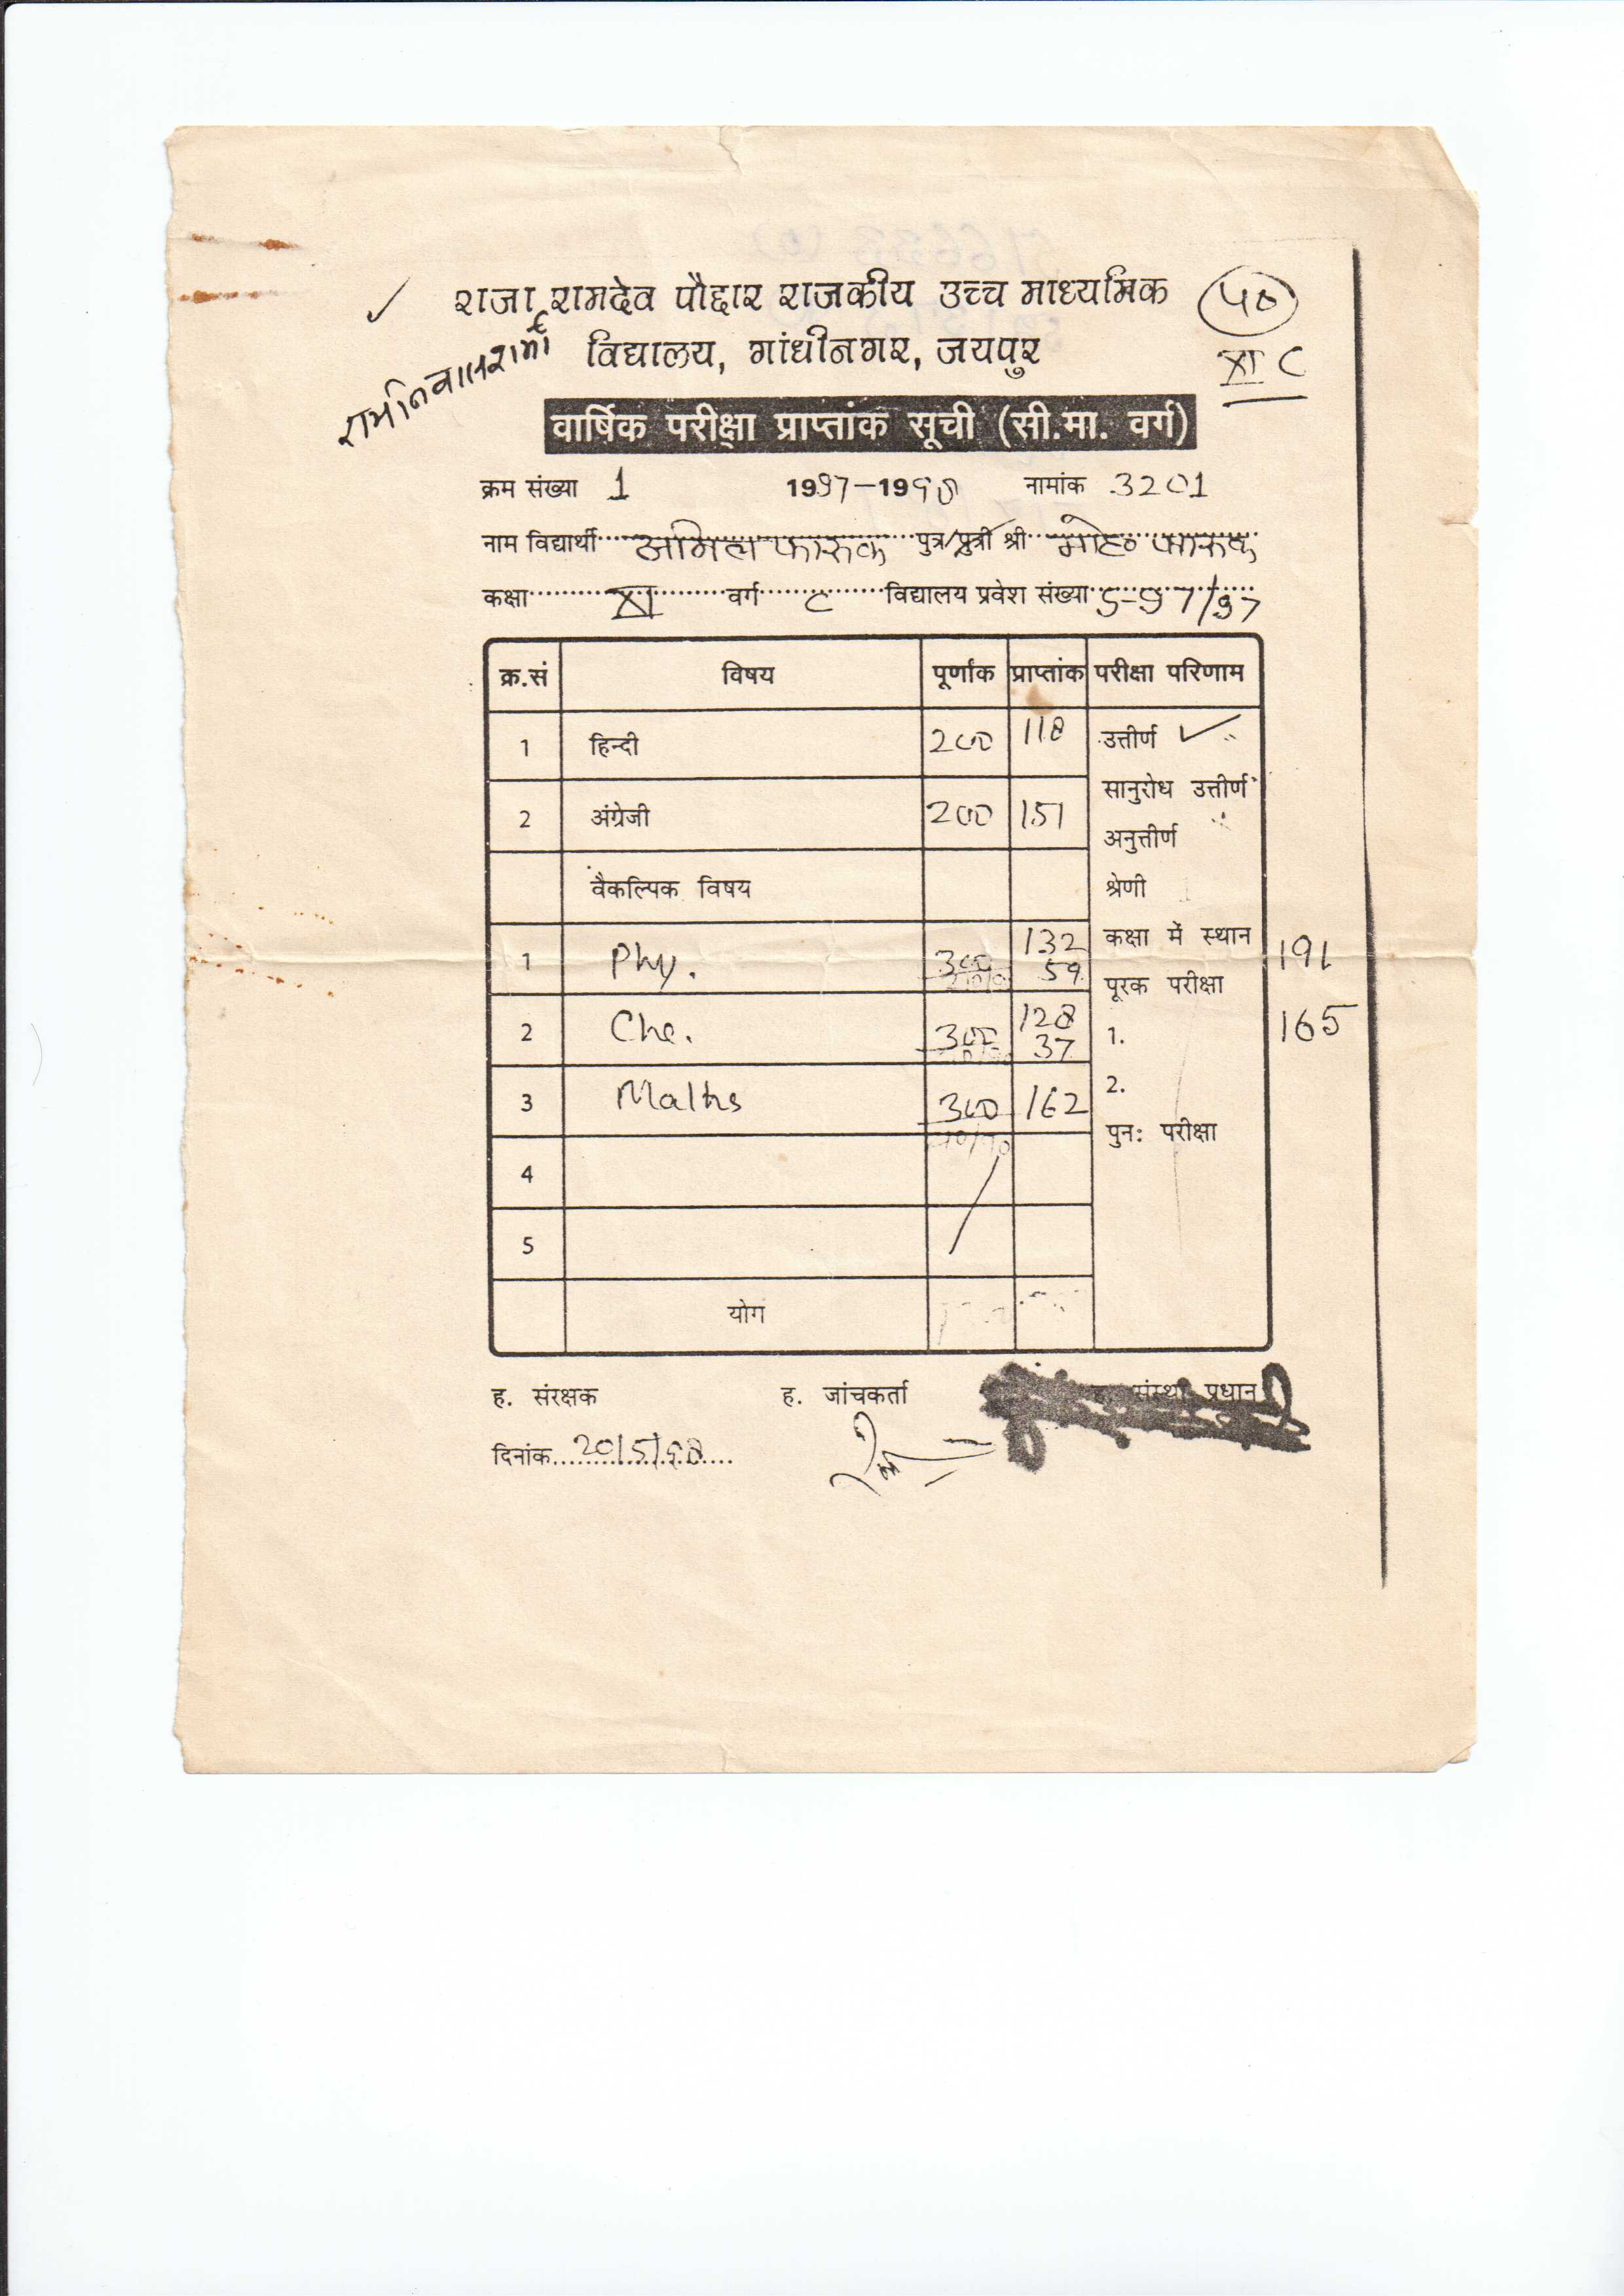 राजा रामदेव पौद्दार राजकीय उच्च माध्यमिक
विद्यालय, गांधीनगर, जयपुर
XI C
वार्षिक परीक्षा प्राप्तांक सूची (सी.मा. वर्ग)
क्रम संख्या 1 1997-1998 नामांक 3201
नाम विद्यार्थी फारुक पुत्र/पुत्री श्री मोह० फारुक
कक्षा XI वर्ग C विद्यालय प्रवेश संख्या 5-97/97
क्र.सं विषय पूर्णांक प्राप्तांक परीक्षा परिणाम
1 हिन्दी 200 118 उत्तीर्ण ✓
सानुरोध उत्तीर्ण
2 अंग्रेजी 200 151
अनुत्तीर्ण
वैकल्पिक विषय श्रेणी
कक्षा में स्थान
1 Phy. 300 132 59 191
पूरक परीक्षा
2 Che. 300 128 37 1. 165
3 Maths 300 162 2.
पुनः परीक्षा
4
5
योग
ह. संरक्षक ह. जांचकर्ता संस्था प्रधान
दिनांक 20/5/98